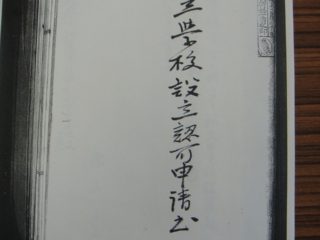 立学校設立認可申請書